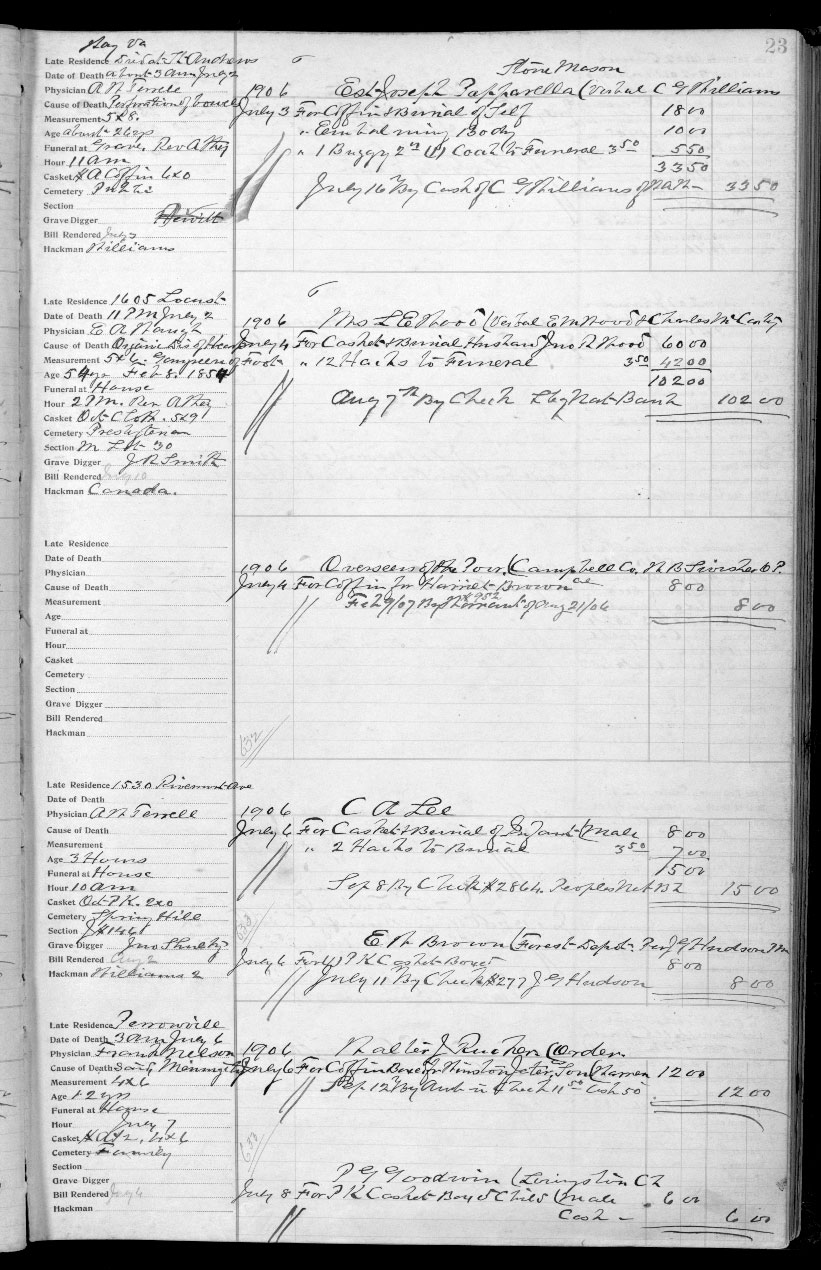 23
Ray Va
Late Residence
Date of Death about 3 am July 2
Physician A W Terrell
Cause of Death Perforation of bowels
Measurement 5x8.
Age about 26 yrs
Funeral at Grave. Rev
Hour 11 am
Casket Coffin 6x0
Cemetery
Section
Grave Digger
Bill Rendered July 3
Hackman Williams
Stone Mason
1906 Est Joseph Papparella (Verbal C G Williams
July 3 For Coffin & Burial of Self 18 00
" Embalming Body 10 00
" 1 Buggy 2 00 (1) Coach to Funeral 3 50 5 50
33 50
July 16 By Cash of C G Williams 33 50
Late Residence 1605 Locust
Date of Death 11 PM July 2
Physician E A Waugh
Cause of Death Organic Dis of Heart
Measurement 5x6. Gangrene of Foot
Age 54 yrs Feb 8. 1854
Funeral at House
Hour 2 PM. Rev
Casket Oct Cloth. 5x9
Cemetery Presbyterian
Section M Lot 30
Grave Digger J R Smith
Bill Rendered
Hackman Canada.
1906 Mrs L E Wood (Verbal E W Wood & Charles McCarthy
July 4 For Casket & Burial Husband Jno R Wood 60 00
" 12 Hacks to Funeral 3 50 42 00
102 00
Aug 7th By Check Lbg Nat Bank 102 00
Late Residence
Date of Death
Physician
Cause of Death
Measurement
Age
Funeral at
Hour
Casket
Cemetery
Section
Grave Digger
Bill Rendered
Hackman
1906 Overseer of the Poor, (Campbell Co.
July 4 For Coffin for Harriet Brown col 8 00
Feb 9/07 By Warrant #952 of Aug 21/06 8 00
632
Late Residence 1530 Rivermont Ave
Date of Death
Physician A W Terrell
Cause of Death
Measurement
Age 3 Hours
Funeral at House
Hour 10 am
Casket Oct P K. 2x0
Cemetery Spring Hill
Section
Grave Digger Jno Shultz
Bill Rendered Aug 2
Hackman Williams 2
1906 C A Lee
July 6 For Casket & Burial of Infant (Male 8 00
" 2 Hacks to Burial 3 50 7 00
15 00
Sep 8 By Check #2864. Peoples Nat Bk 15 00
E W Brown (Forest Depot. Per J G Hudson
July 6 For (1) P K Casket Boxed 8 00
July 11 By Check #277 J G Hudson 8 00
Late Residence Perrowville
Date of Death 3 am July 6
Physician Frank Nelson
Cause of Death Meningitis
Measurement 4x6
Age 12 yrs
Funeral at House
Hour July 7
Casket 4x6
Cemetery Family
Section
Grave Digger
Bill Rendered July 6
Hackman
1906 Walter J Rucker (Order.
July 6 For Coffin Boxed for Winston Jeter, Son (Warren 12 00
Sep 12 By & Check 11 50 Cash 50 12 00
633
P G Goodwin (Livingston
July 8 For P K Casket Boxed Child (Male 6 00
Cash - 6 00